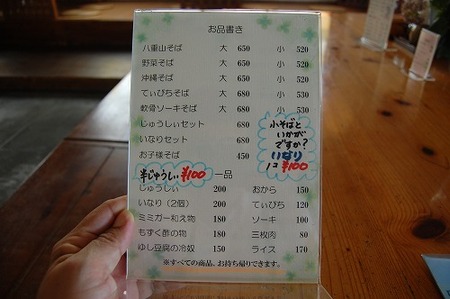 お品書き
八重山そば 大 650 小 520
野菜そば 大 650 小 520
沖縄そば 大 650 小 520
てぃびちそば 大 680 小 530
軟骨ソーキそば 大 680 小 530
じゅうしぃセット 680
いなりセット 680
お子様そば 450
小そばと
いかがですか?
いなり
1コ ¥100
半じゅうしぃ ¥100 一品
じゅうしぃ 200 おから 150
いなり(2個) 200 てぃびち 120
ミミガー和え物 180 ソーキ 100
もずく酢の物 180 三枚肉 80
ゆし豆腐の冷奴 150 ライス 170
※すべての商品、お持ち帰りできます。